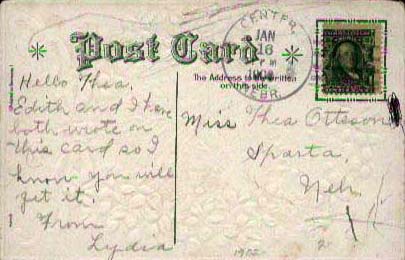 Post Card
CENTER,
JAN
16
P M
NEBR.
The Address to be written
on this side
Hello Thea,
Edith and I have
both wrote on
this card so I
know you will
get it.
From
Lydia
Miss Thea Otteson
Sparta,
Neb.